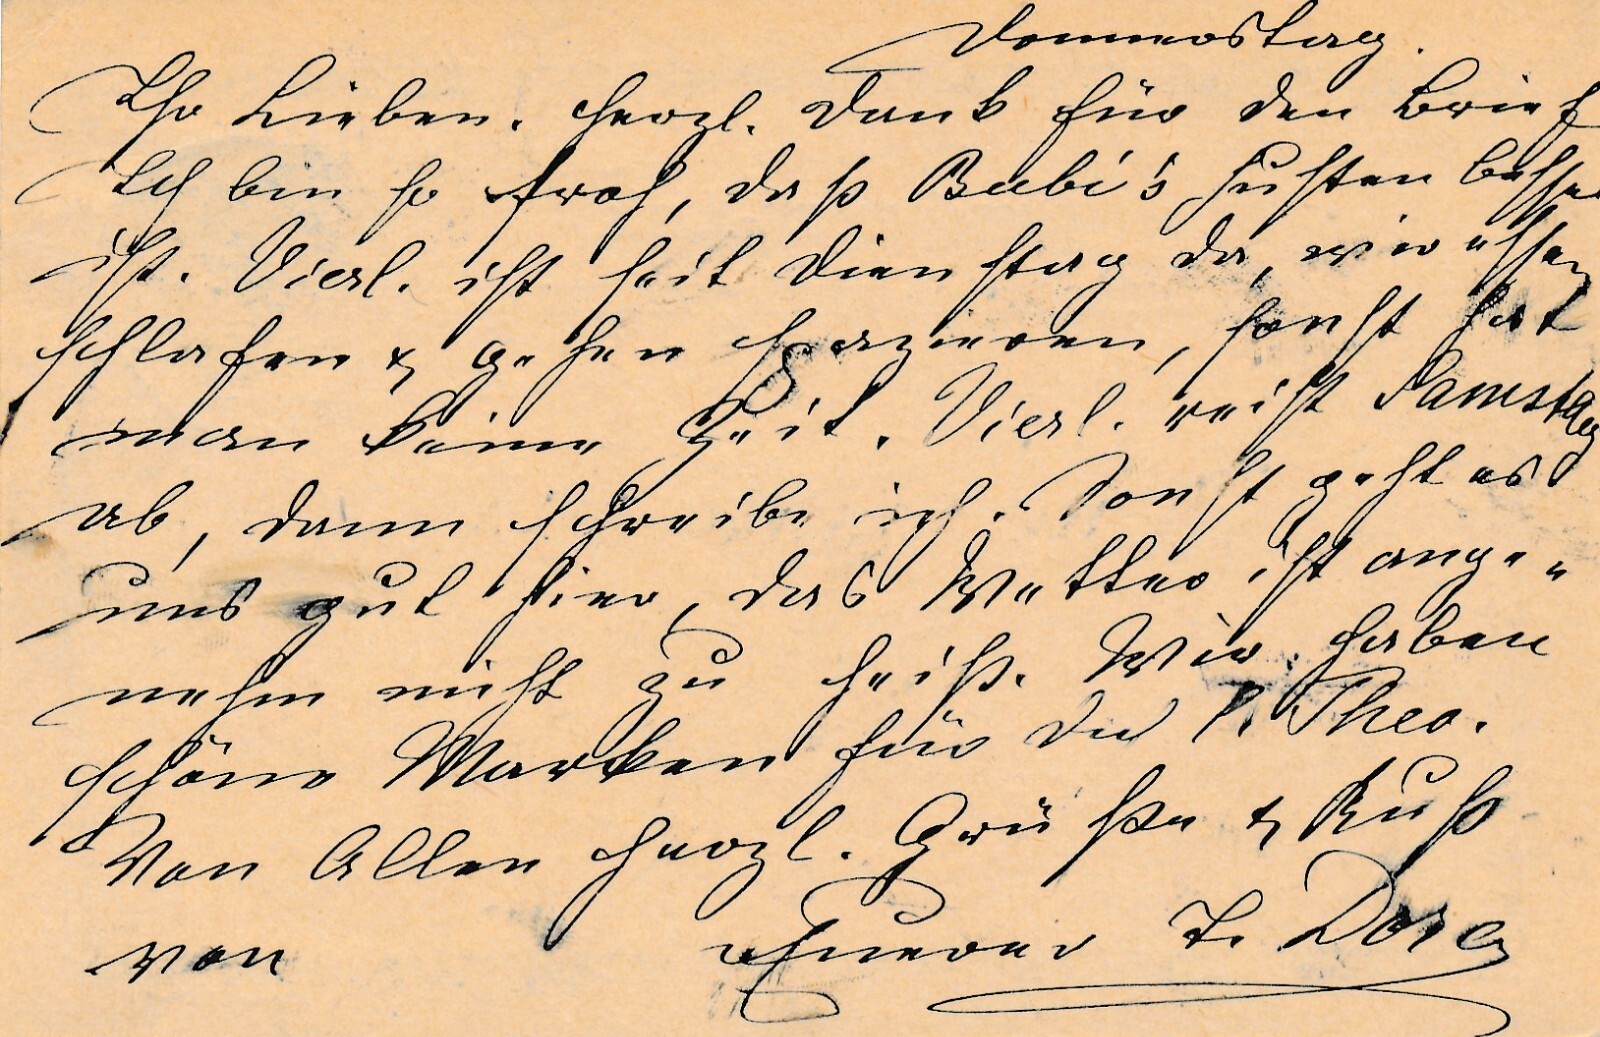 Donnerstag.
Ihr Lieben. Herzl. Dank für den Brief
Ich bin so froh, daß Bubi's Husten besser
ist. Vierl. ist seit Dienstag da, wir essen
schlafen & gehen spazieren, sonst hat
man keine Zeit. Vierl. reist Samstag
ab, dann schreibe ich. Sonst geht es
uns gut hier, das Wetter ist ange=
nehm nicht zu heiß. Wir haben
schöne Marken für den l. Theo.
Von Allen herzl. Grüße & Kuß
von Eurer T. Dora